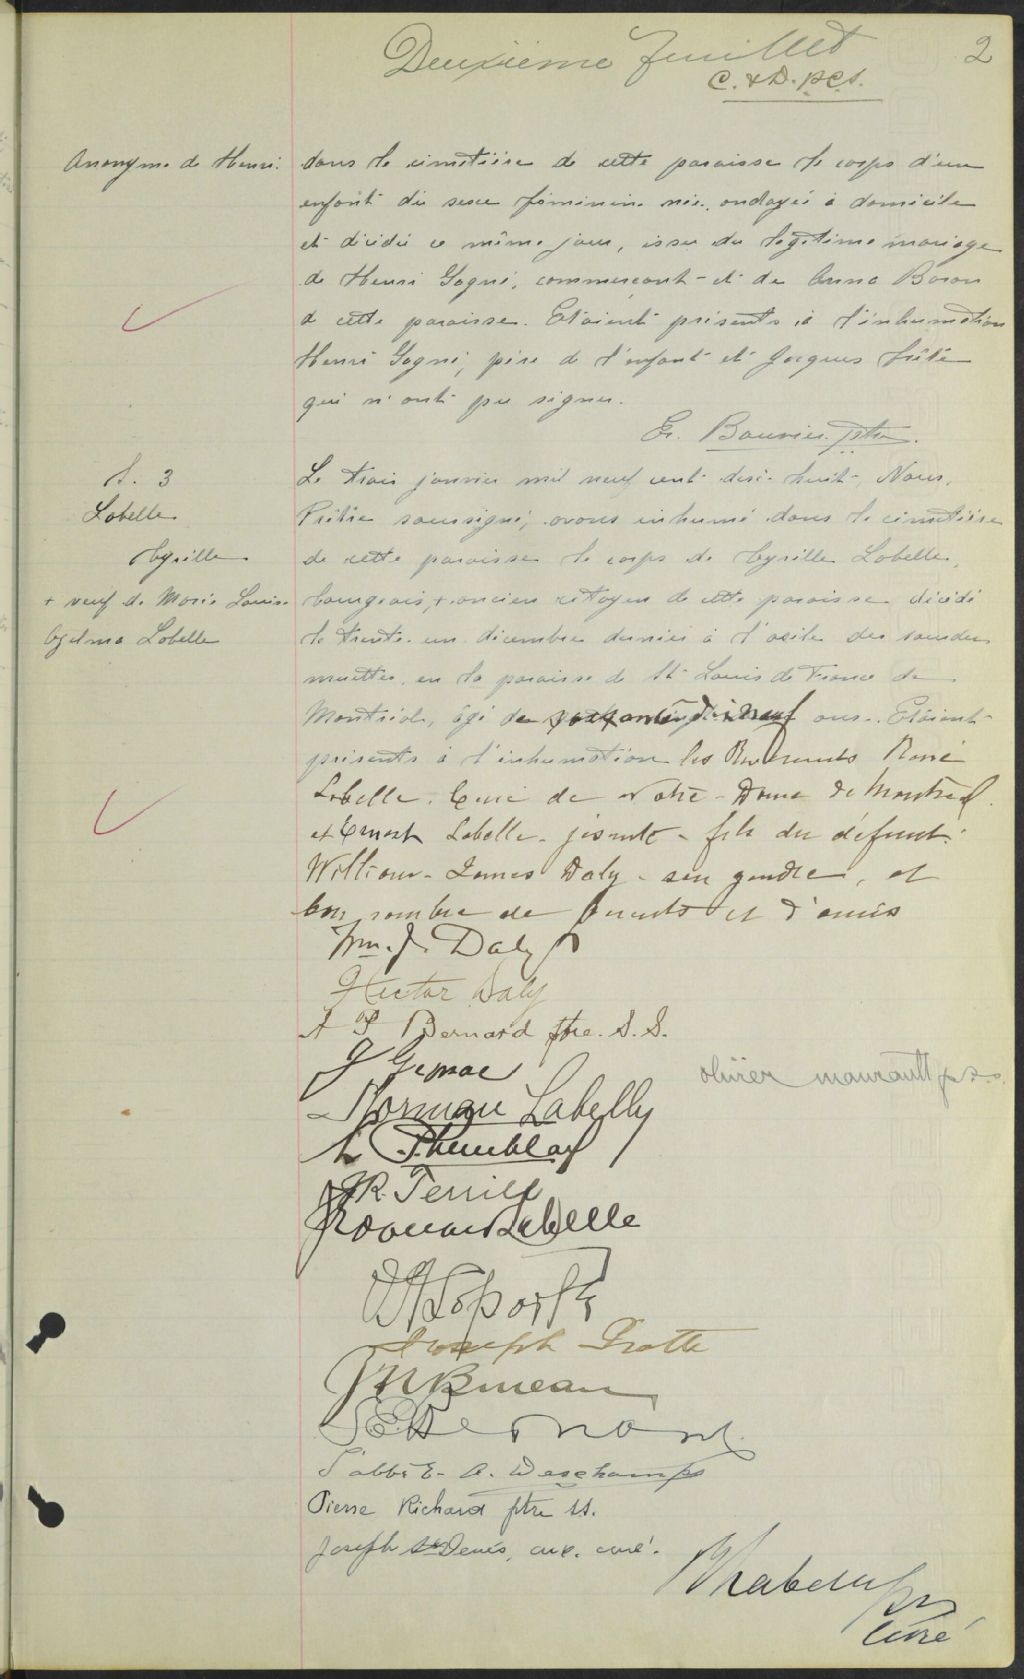 Deuxième feuillet
2
C. & D. p.c.s.
Anonyme de Henri
dans le cimetière de cette paroisse le corps d'un
enfant du sexe féminin née, ondoyée à domicile
et décédée ce même jour, issue du légitime mariage
de Henri Gagné, commerçant et de Anna Baron
de cette paroisse. Étaient présents à l'inhumation
Henri Gagné, père de l'enfant et Jacques
qui n'ont pu signer.
ptre.
S. 3
Labelle
Cyrille
+ veuf de Marie Louise
Labelle
Le trois janvier mil neuf cent dix-huit, Nous,
Prêtre soussigné, avons inhumé dans le cimetière
de cette paroisse le corps de Cyrille Labelle,
bourgeois, + ancien citoyen de cette paroisse décédé
le trente-un décembre dernier à l'asile des sourdes
muettes, en la paroisse de St Louis de France de
Montréal, âgé de ans. Étaient
présents à l'inhumation les Révérends René
Labelle, Curé de Notre-Dame de Montréal
et Ernest Labelle, jésuite - fils du défunt.
William-James Daly - son gendre, et
bon nombre de parents et d'amis
Wm. J. Daly
Hector Daly
A P Bernard ptre. S. S.
Olivier Maurault p.s.s.
Norman Labelle
L P Tremblay
J.R. Terrill
Labelle
Laporte
Joseph Gratto
Bernard
L'abbé E. A. Deschamps
Pierre Richard ptre SS.
Joseph St Denis, anc. curé.
curé